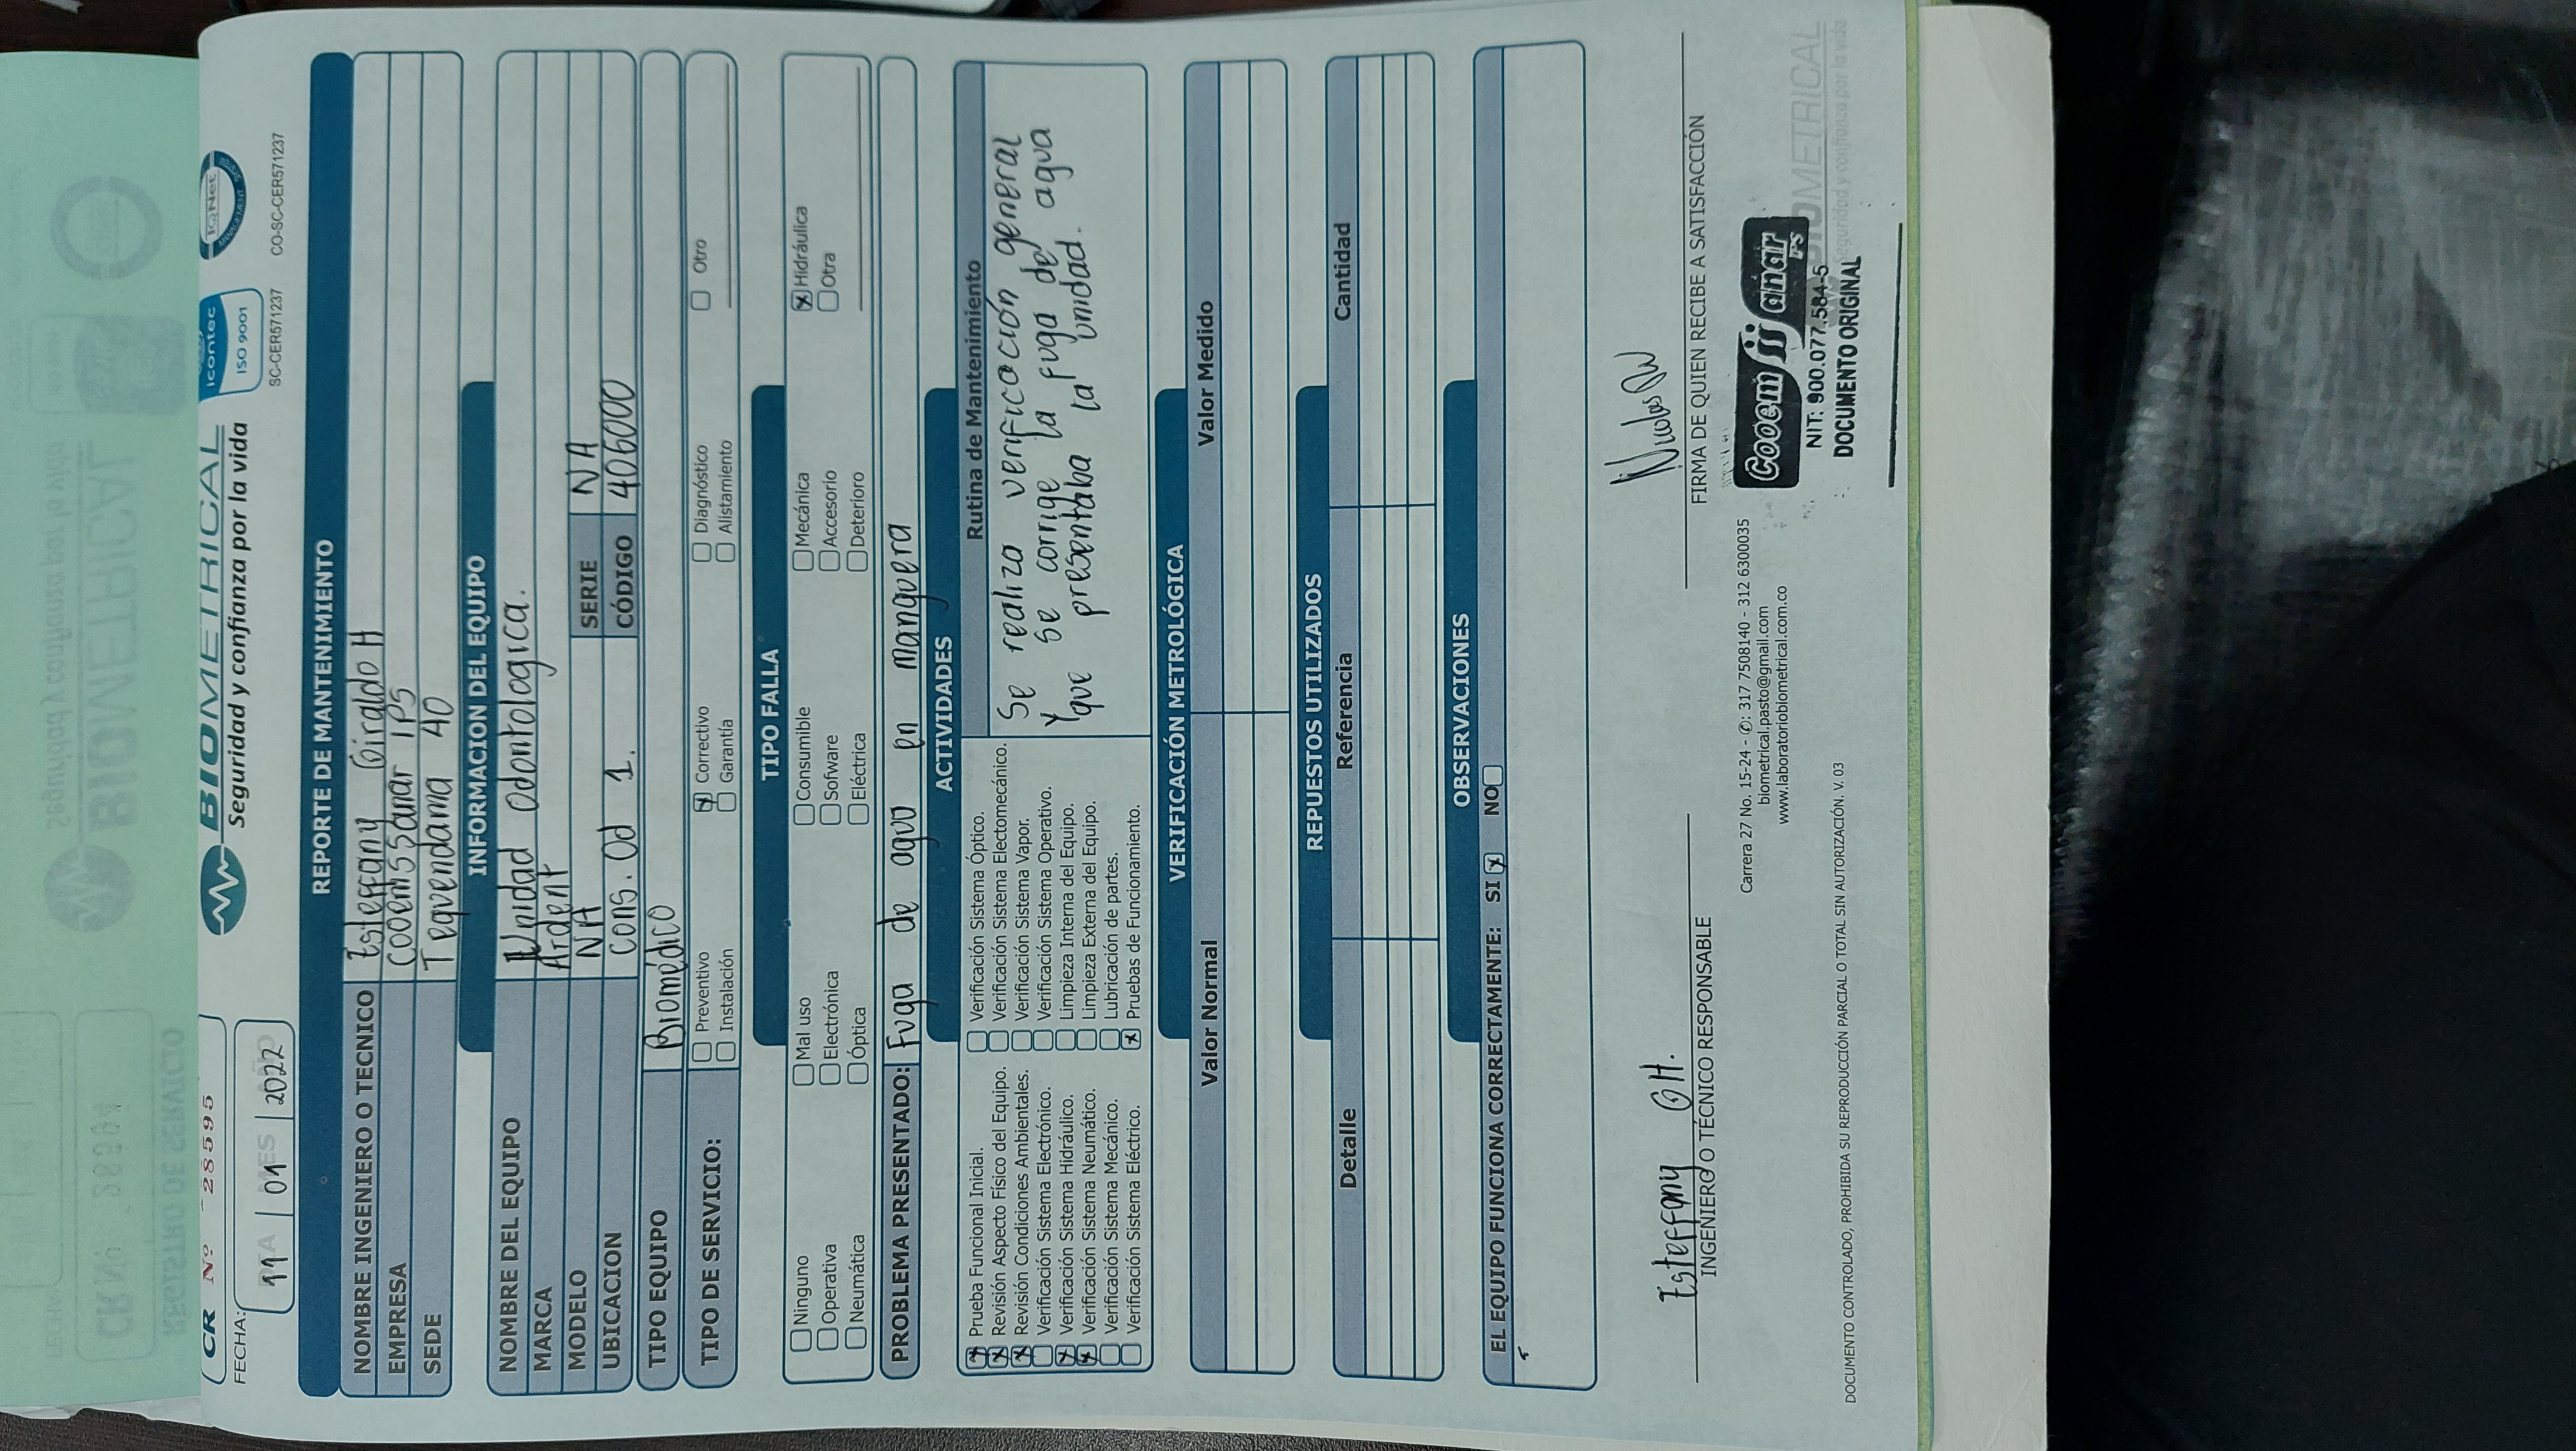 Seguridad y confianza por la vida
BIOMETRICAL
CR Nº 28594
REGISTRO DE SERVICIO
CR Nº 28595
BIOMETRICAL
Seguridad y confianza por la vida
icontec
ISO 9001
SC-CER571237
IQNet
CO-SC-CER571237
FECHA:
11 | 01 | 2022
REPORTE DE MANTENIMIENTO
NOMBRE INGENIERO O TECNICO Esteffany Giraldo H
EMPRESA Cooemssanar IPS
SEDE Tequendama 40
INFORMACION DEL EQUIPO
NOMBRE DEL EQUIPO Unidad Odontologica.
MARCA Ardent
MODELO NA SERIE NA
UBICACION Cons. Od 1. CÓDIGO 406000
TIPO EQUIPO Biomédico
TIPO DE SERVICIO: Preventivo Correctivo Diagnóstico Otro
Instalación Garantía Alistamiento
TIPO FALLA
Ninguno Mal uso Consumible Mecánica Hidráulica
Operativa Electrónica Sofware Accesorio Otra
Neumática Óptica Eléctrica Deterioro
PROBLEMA PRESENTADO: Fuga de agua en manguera
ACTIVIDADES
Prueba Funcional Inicial.
Revisión Aspecto Físico del Equipo.
Revisión Condiciones Ambientales.
Verificación Sistema Electrónico.
Verificación Sistema Hidráulico.
Verificación Sistema Neumático.
Verificación Sistema Mecánico.
Verificación Sistema Eléctrico.
Verificación Sistema Óptico.
Verificación Sistema Electomecánico.
Verificación Sistema Vapor.
Verificación Sistema Operativo.
Limpieza Interna del Equipo.
Limpieza Externa del Equipo.
Lubricación de partes.
Pruebas de Funcionamiento.
Rutina de Mantenimiento
Se realiza verificación general
y se corrige la fuga de agua
que presentaba la unidad.
VERIFICACIÓN METROLÓGICA
Valor Normal Valor Medido
REPUESTOS UTILIZADOS
Detalle Referencia Cantidad
OBSERVACIONES
EL EQUIPO FUNCIONA CORRECTAMENTE: SI NO
Esteffany GH.
INGENIERO O TÉCNICO RESPONSABLE
Nicolas
FIRMA DE QUIEN RECIBE A SATISFACCIÓN
Carrera 27 No. 15-24 - ✆: 317 7508140 - 312 6300035
biometrical.pasto@gmail.com
www.laboratoriobiometrical.com.co
Cooemssanar
IPS
NIT: 900.077.584-5
DOCUMENTO ORIGINAL
BIOMETRICAL
Seguridad y confianza por la vida
DOCUMENTO CONTROLADO, PROHIBIDA SU REPRODUCCIÓN PARCIAL O TOTAL SIN AUTORIZACIÓN. V. 03